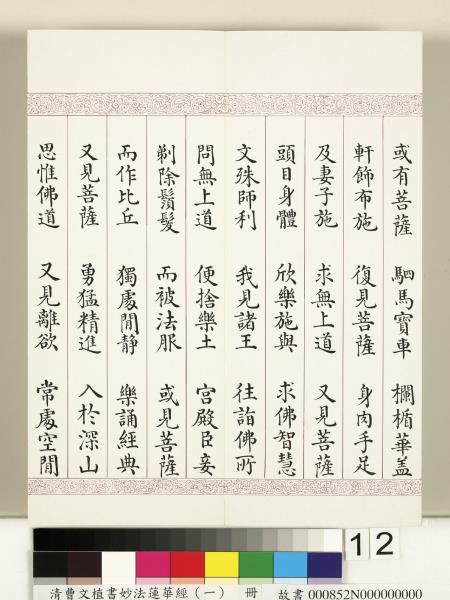 或有菩薩 駟馬寶車 欄楯華盖
軒飾布施 復見菩薩 身肉手足
及妻子施 求無上道 又見菩薩
頭目身體 欣樂施與 求佛智慧
文殊師利 我見諸王 往詣佛所
問無上道 便捨樂土 宮殿臣妾
剃除鬚髮 而被法服 或見菩薩
而作比丘 獨處閒靜 樂誦經典
又見菩薩 勇猛精進 入於深山
思惟佛道 又見離欲 常處空閒
12
清曹文植書妙法蓮華經(一) 冊 故書 000852N000000000